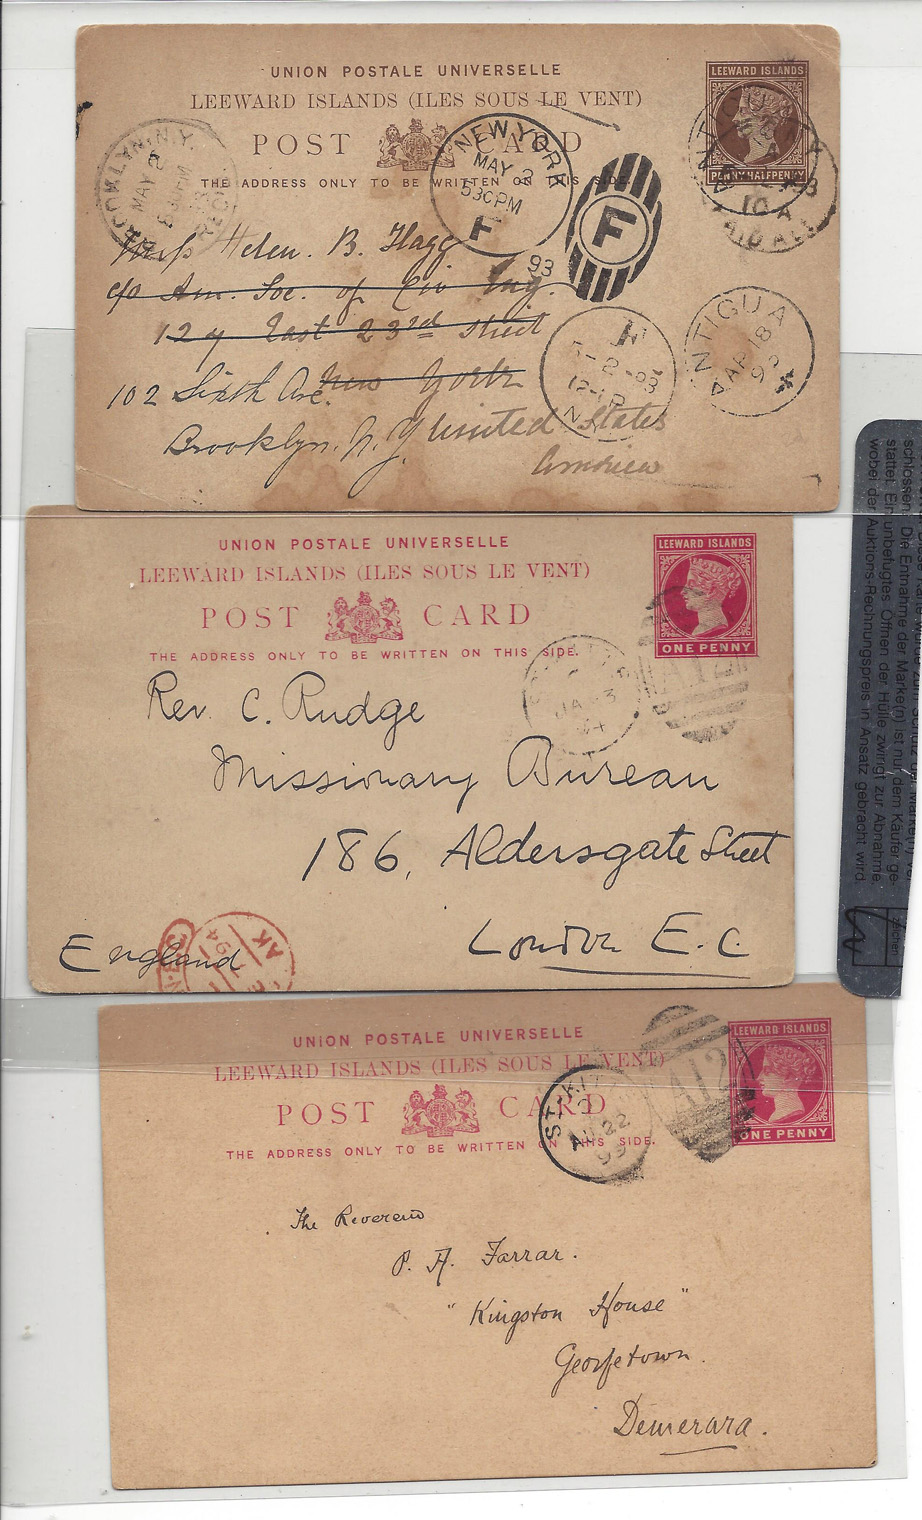 UNION POSTALE UNIVERSELLE
LEEWARD ISLANDS (ILES SOUS LE VENT)
POST CARD
THE ADDRESS ONLY TO BE WRITTEN ON THIS SIDE.
LEEWARD ISLANDS
PENNY HALFPENNY
BROOKLYN, N.Y.
MAY 2
REC'D
NEW YORK
MAY 2
530PM
F
93
F
ANTIGUA
10 A
ANTIGUA
AP 18
93
2-93
N.Y.
Miss Helen. B. Flagg
c/o Am. Soc. of Civ Eng.
127 East 23rd Street
New York
102 Sixth Ave.
Brooklyn. N. Y United States
America
UNION POSTALE UNIVERSELLE
LEEWARD ISLANDS (ILES SOUS LE VENT)
POST CARD
THE ADDRESS ONLY TO BE WRITTEN ON THIS SIDE.
LEEWARD ISLANDS
ONE PENNY
A12
JA 3
94
Rev. C. Rudge
Missionary Bureau
186, Aldersgate Street
London E.C.
England
94
AK
UNION POSTALE UNIVERSELLE
LEEWARD ISLANDS (ILES SOUS LE VENT)
POST CARD
THE ADDRESS ONLY TO BE WRITTEN ON THIS SIDE.
LEEWARD ISLANDS
ONE PENNY
A12
22
The Reverend
P. A. Farrar.
"Kingston House"
Georgetown.
Demerara.
schlossen. Die Entnahme der Marke(n) ist nur dem Käufer ge-
stattet. Ein unbefugtes Öffnen der Hülle zwingt zur Abnahme
wobei der Auktions-Rechnungspreis in Ansatz gebracht wird.